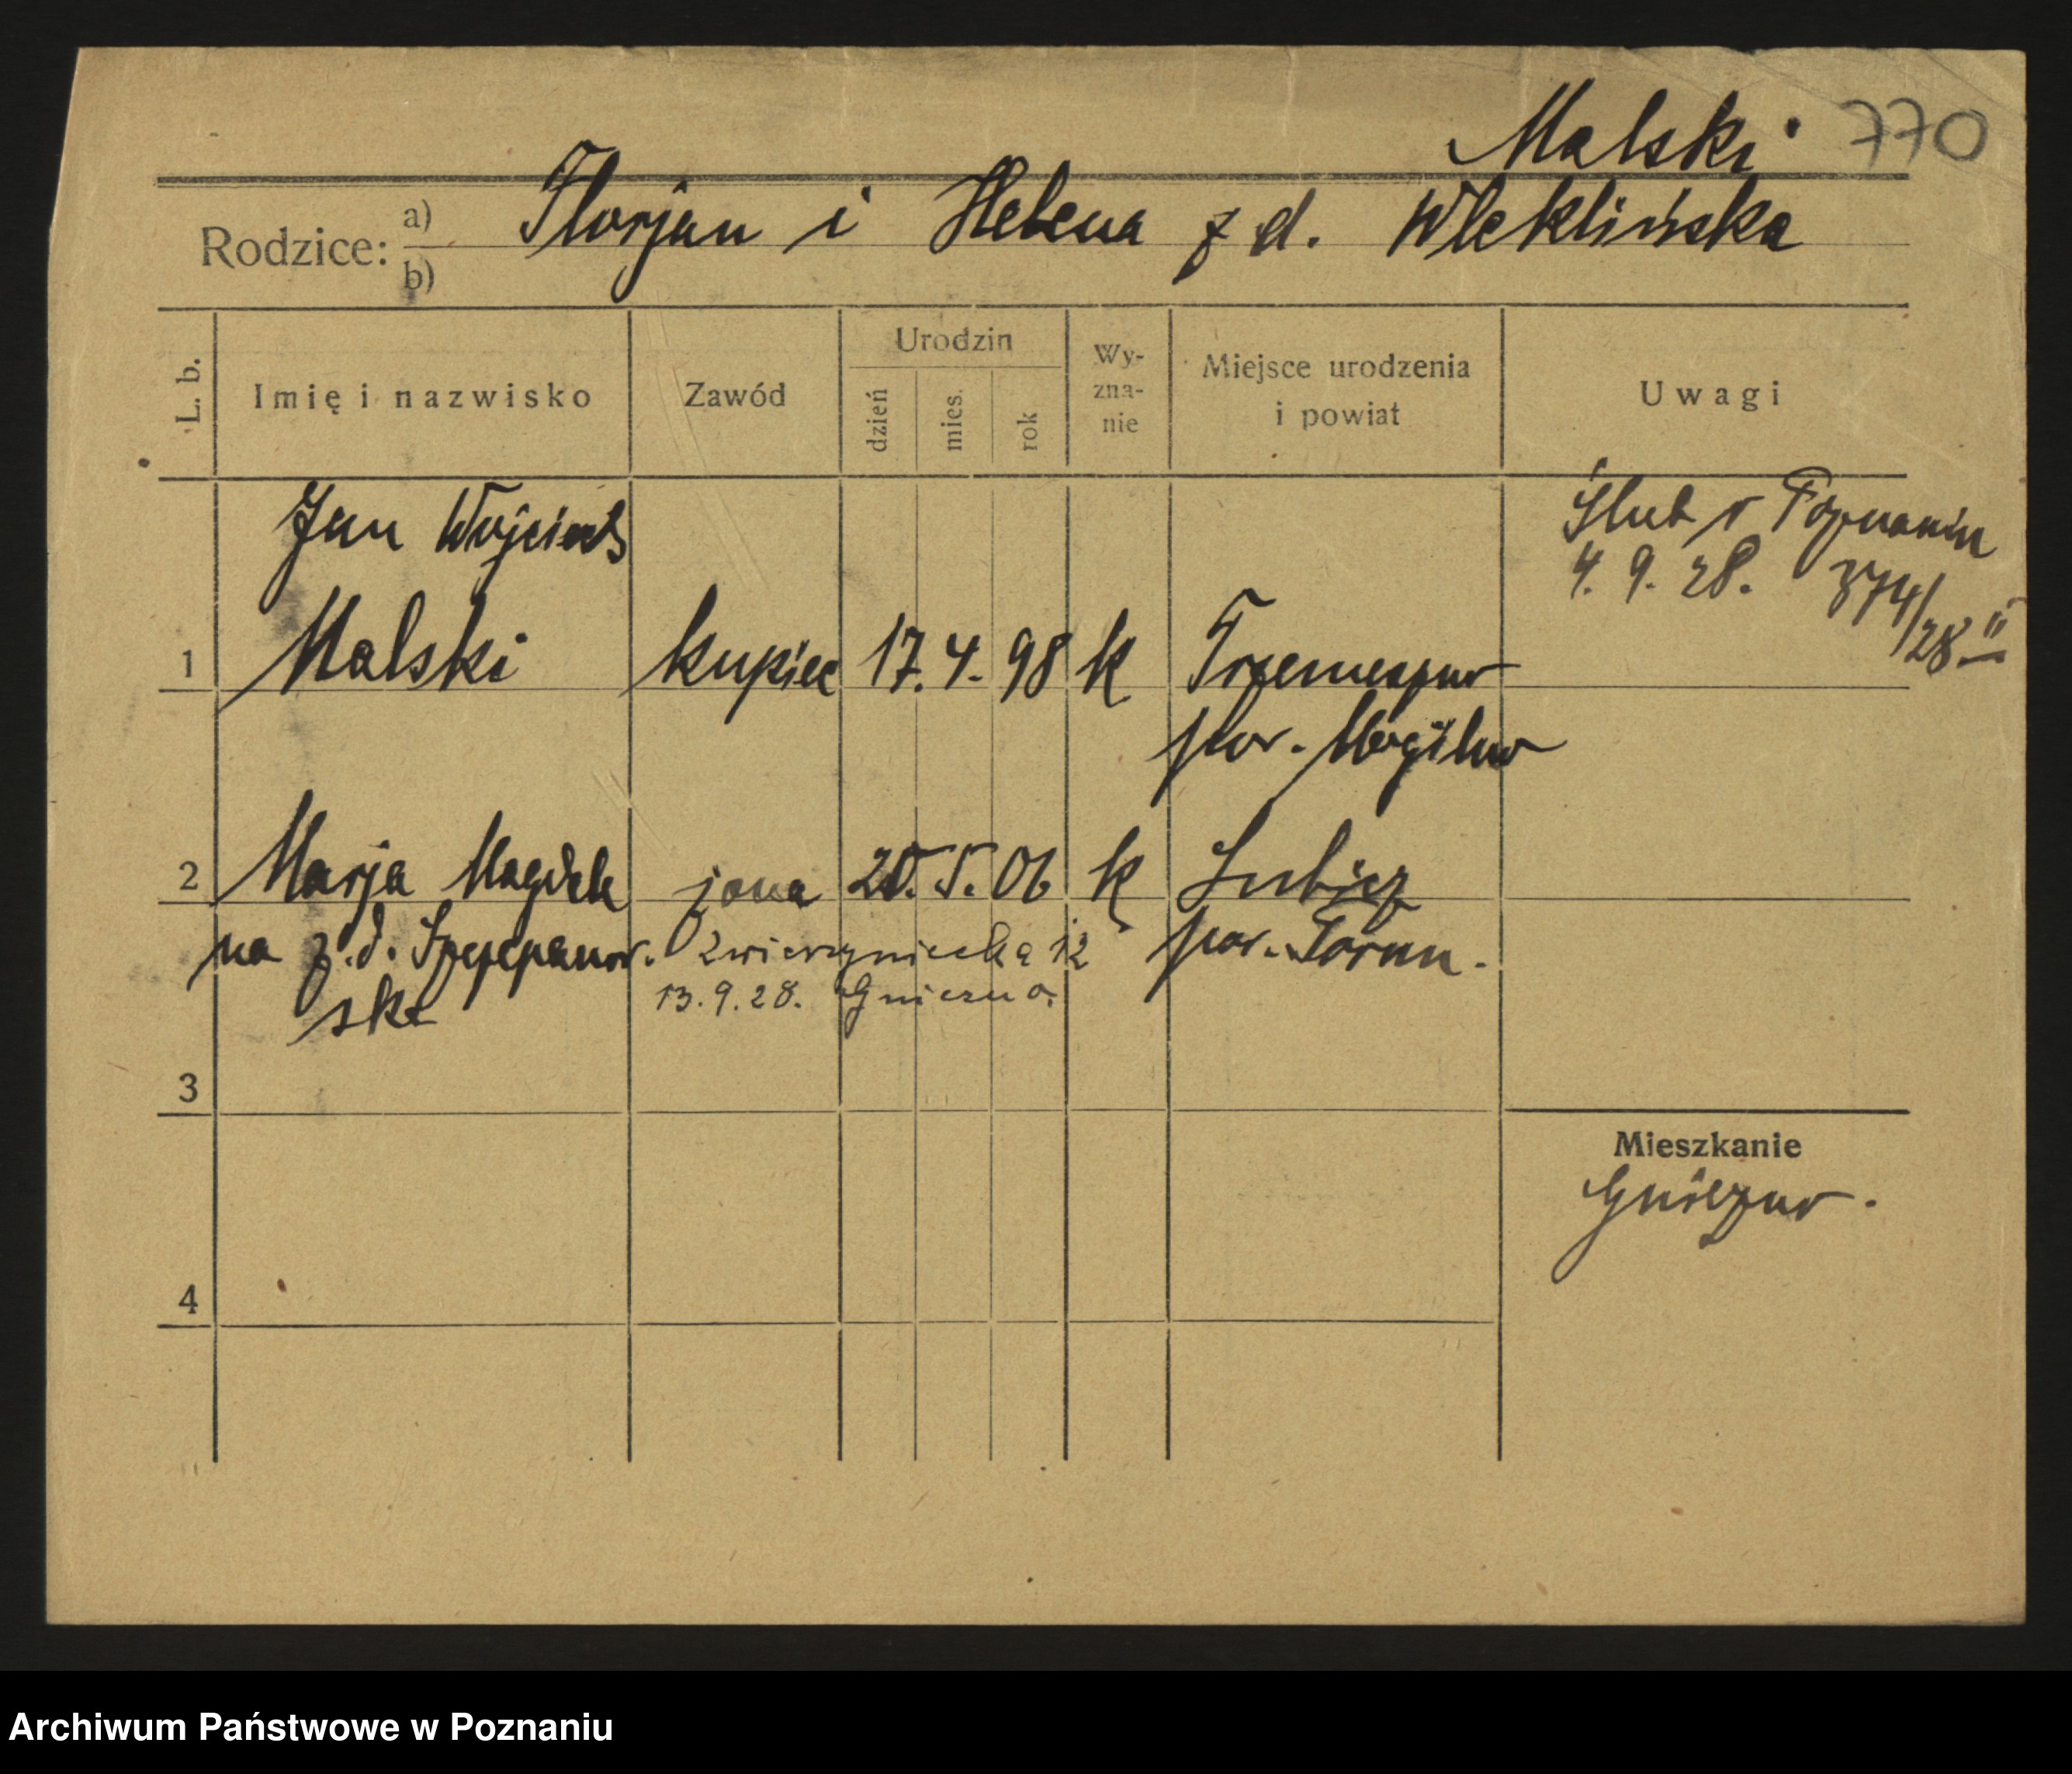 Malski 770
Rodzice: a) b) Florjan i Helena z d. Wleklińska
L. b. Imię i nazwisko Zawód Urodzin dzień mies. rok Wy-zna-nie Miejsce urodzenia i powiat Uwagi
Jan Wojciech
Ślub w Poznaniu
4. 9. 28. 374/28 II
1 Malski kupiec 17. 4. 98 k Trzemeszno
pow. Mogilno
2 Marja Magdale żona 20. 5. 06 k Lubicz
na z. d. Szczepanow. Zwierzyniecka 12 pow. Toruń.
ska 13. 9. 28. Gniezno.
3
Mieszkanie
Gniezno.
4
Archiwum Państwowe w Poznaniu